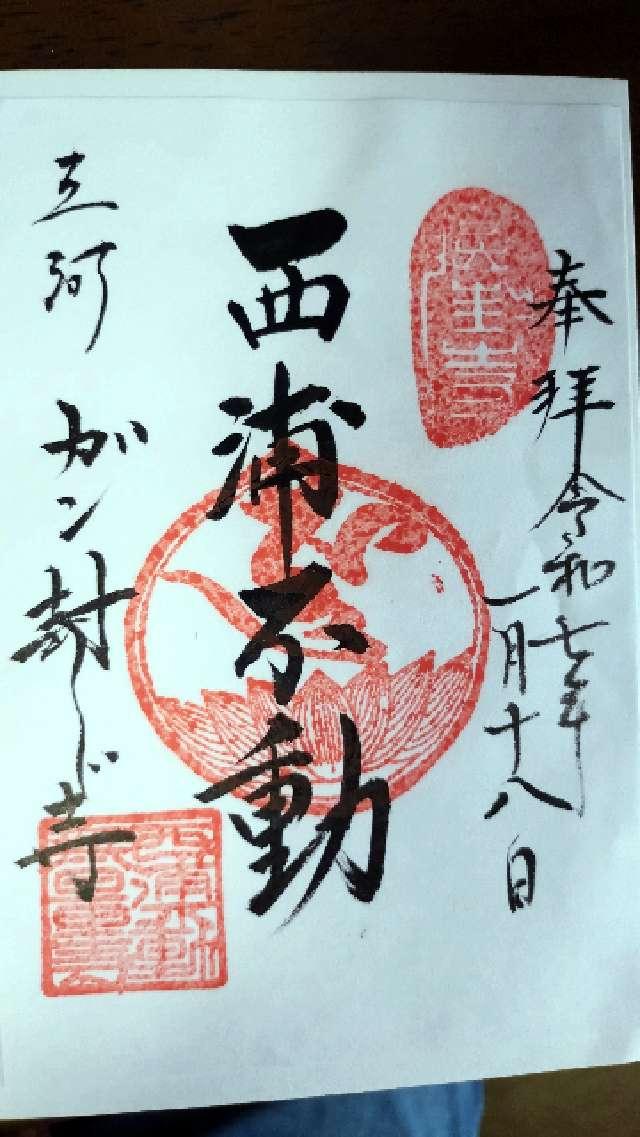 奉拝 令和七年
一月十八日
西浦不動
三河 ガン封じ寺